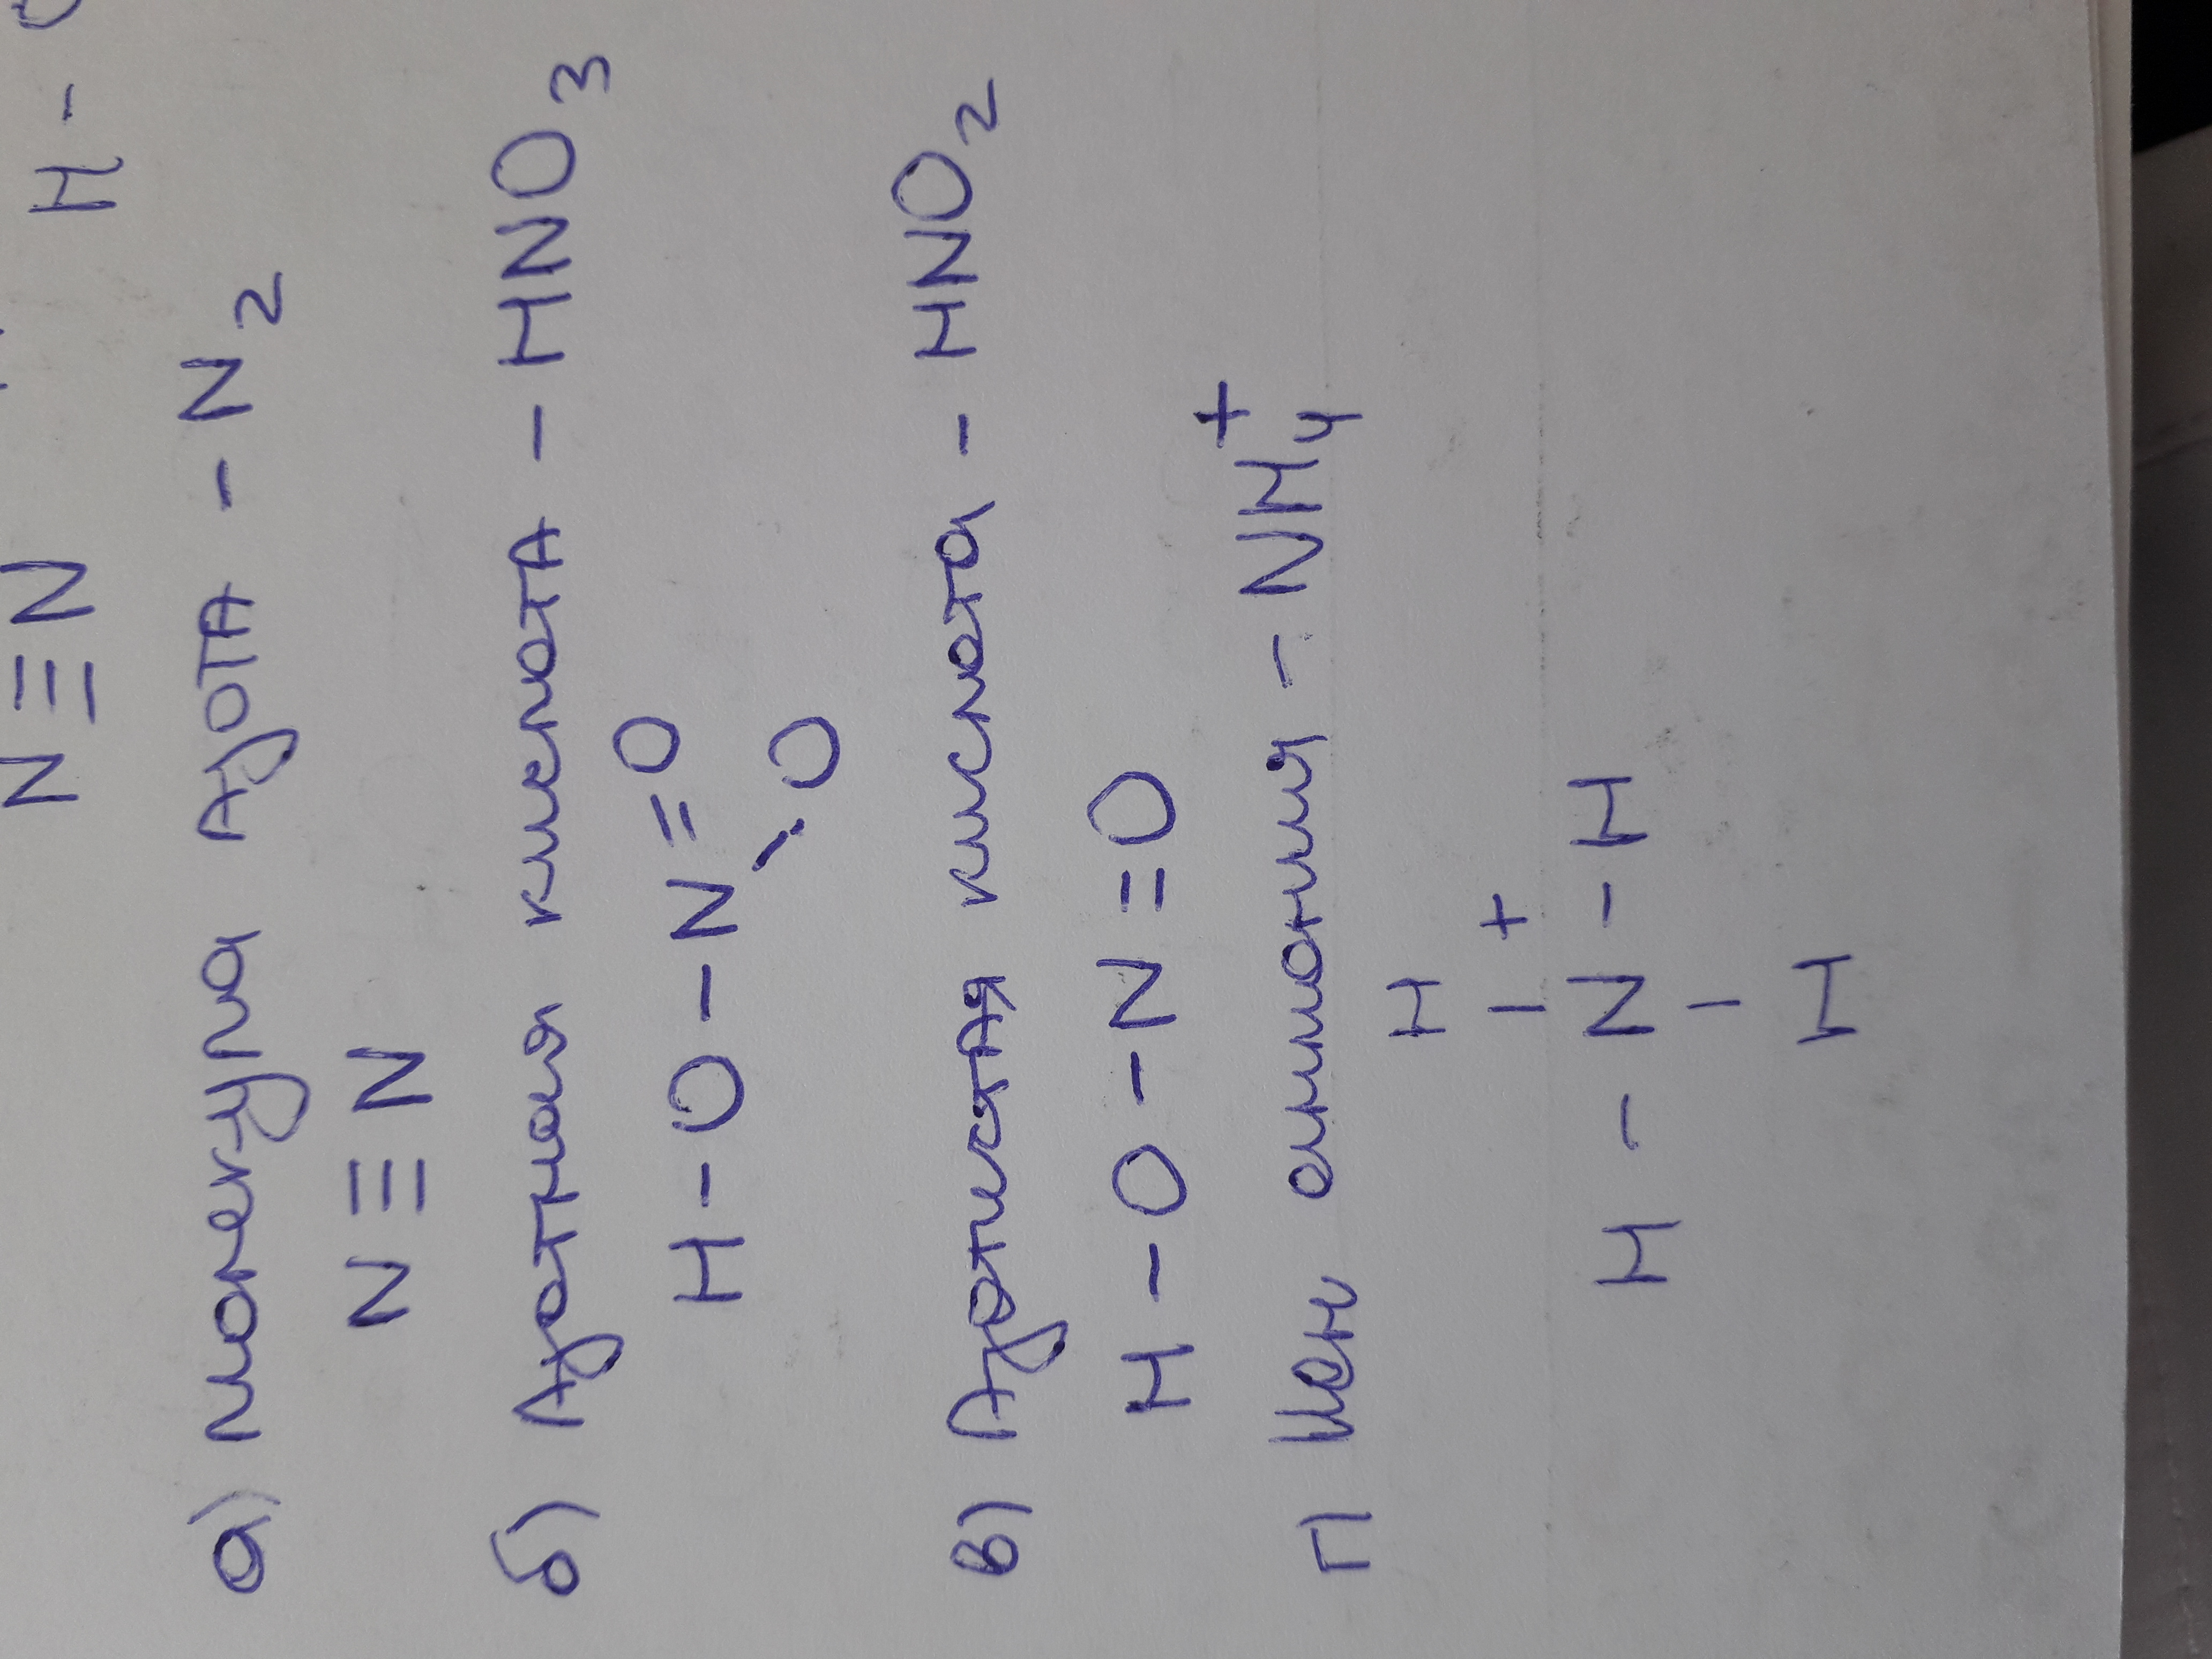 N≡N H-
а) молекула Азота - N2
N≡N
б) Азотная кислота - HNO3
H-O-N=O
O
в) Азотистая кислота - HNO2
H-O-N=O
г) Ион аммония - NH4+
H
+
H-N-H
H